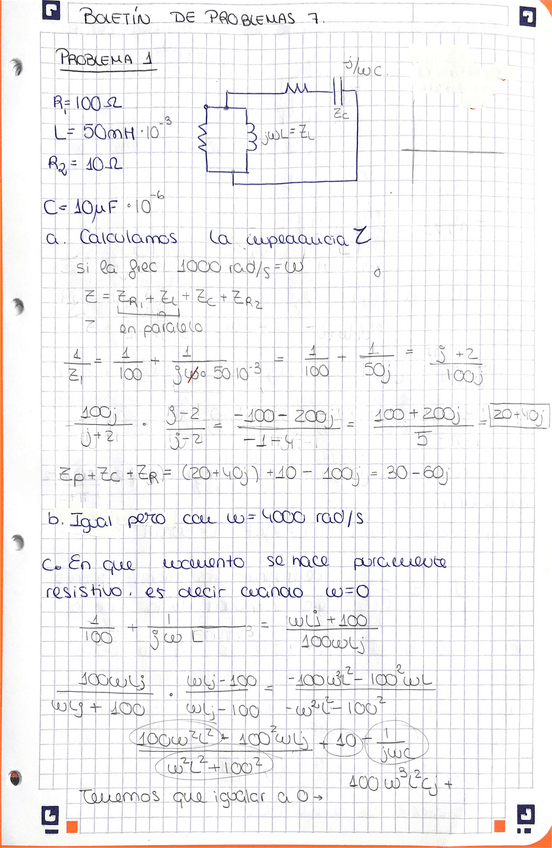 BOLETÍN DE PROBLEMAS 7.
PROBLEMA 1
j/ωC
R₁ = 100 Ω
Zc
jωL = ZL
L = 50mH · 10⁻³
R₂ = 10 Ω
C = 10μF · 10⁻⁶
a. Calculamos la impedancia Z
si la frec 1000 rad/s = ω
Z = ZR₁ + ZL + ZC + ZR₂
Z en paralelo
1/Z₁ = 1/100 + 1/(jω 50 10⁻³) = 1/100 + 1/50j = (j+2)/100j
100j/(j+2) · (j-2)/(j-2) = (-100-200j)/(-1-4) = (100+200j)/5 = 20+40j
Zp + Zc + ZR = (20+40j) + 10 - 100j = 30-60j
b. Igual pero con ω = 4000 rad/s
c. En que momento se hace puramente
resistivo. es decir cuando ω=0
1/100 + 1/(jωL) = (ωLj+100)/(100ωLj)
100ωLj/(ωLj+100) · (ωLj-100)/(ωLj-100) = (-100ω²L²-100²ωL)/(-ω²L²-100²)
(100ω²L²+100²ωLj)/(ω²L²+100²) + 10 + 1/(jωC)
100ω³L²Cj +
Tenemos que igualar a 0 →